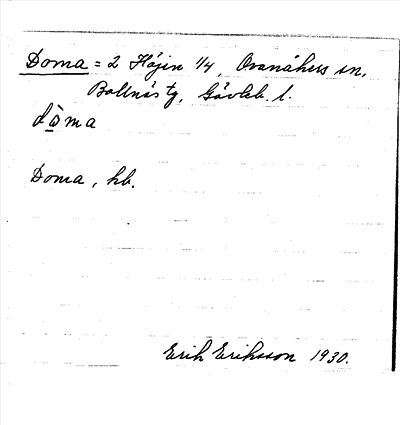 Doma = 2 Höjen 1/4, Ovanåkers sn,
Bollnäs tg, Gävleb. l.
dòma
Doma, hb.
Erik Eriksson 1930.